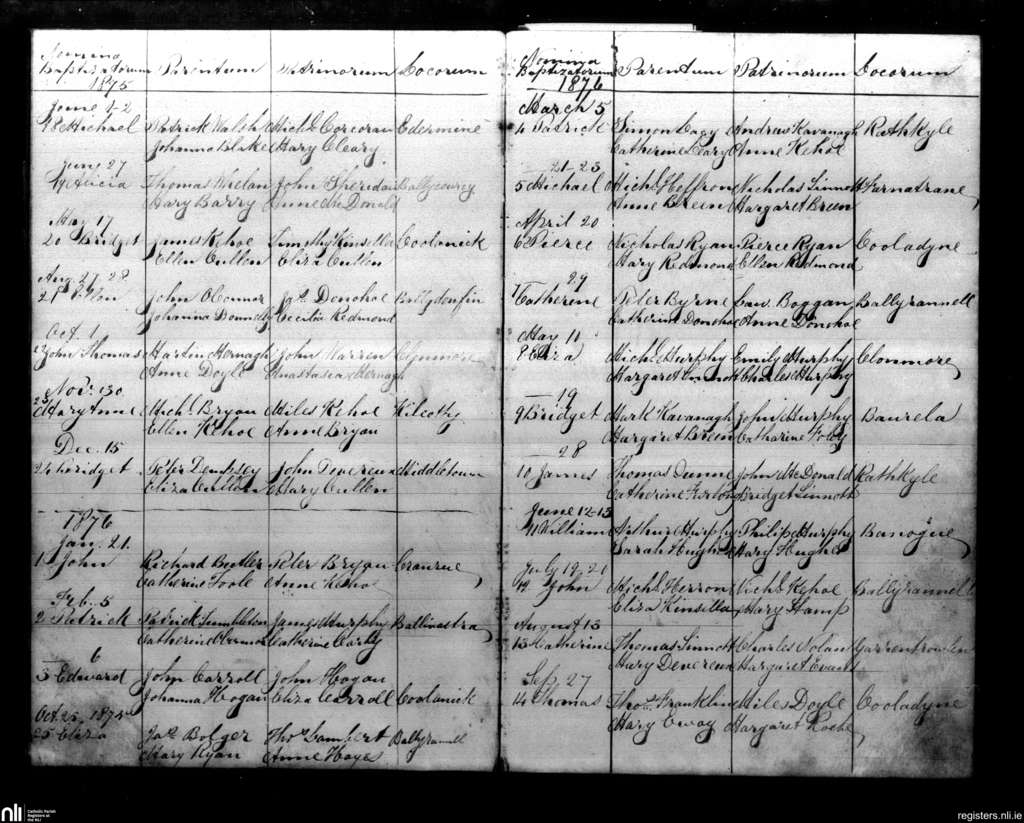 Nomina
Baptizatorum Parentum Patrinorum Locorum
1875
June 1-2
18 Michael Patrick Walsh Michl. Corcoran Edermine
Johanna Blake Mary Cleary
27
19 Alicia Thomas Whelan John Sheridan Ballycourcy
Mary Barry Anne McDonald
May 17
20 Bridget James Kehoe Timothy Kinsella Coolanick
Ellen Cullen Eliza Cullen
Aug. 27. 28
21 Ellen John OConnor Jas. Donohoe
Johanna Donnelly Cecilia Redmond
Oct. 1
John Thomas Martin Kernagh John Warren
Anne Doyle Anastasia Kernagh
Nov. 30
Mary Anne Michl. Bryan Miles Kehoe Kilcothy
Ellen Kehoe Anne Bryan
Dec. 15
24 Bridget Peter Dempsey John Devereux Middletown
Eliza Cullen Mary Cullen
1876
Jan. 21.
1 John Richard Butler Peter Bryan Cranrue
Catherine Toole Anne Kehoe
Feb. 5
2 Patrick Patrick Tumbleton James Murphy Ballinastra
Catherine Catherine Carty
6
3 Edward John Carroll John Hogan
Johanna Hogan Eliza Carroll Coolanick
Oct. 25, 1875
25 Eliza Jas. Bolger Thos. Lambert Ballyrannell
Mary Ryan Anne Haye
Nomina
Baptizatorum Parentum Patrinorum Locorum
1876
March 5
4 Patrick Simon Cagy Andrew Kavanagh Rathkyle
Catherine Leary Anne Kehoe
21-23
5 Michael Michl. Heffron Nicholas Sinnott Garnatrane
Anne Breen Margaret Breen
April 20
6 Pierce Nicholas Ryan Pierce Ryan Cooladyne
Mary Redmond Ellen Redmond
29
7 Catherine Peter Byrne Law. Boggan Ballyrannell
Catherine Donohoe Anne Donohoe
May 10
8 Eliza Michl. Murphy Emily Murphy Clonmore
Margaret Sinnott Charles Murphy
19
9 Bridget Mark Kavanagh John Murphy Baurela
Margaret Breen Catharine Foley
28
10 James Thomas Dunne John McDonald Rathkyle
Catherine Furlong Bridget Sinnott
June 12-15
11 William Arthur Murphy Philip Murphy Banogue
Sarah Hughes Mary Hughes
July 19. 20
12 John Michl. Herron Michl. Kehoe Ballyrannell
Eliza Kinsella Mary Hamp
August 13
13 Catherine Thomas Sinnott Charles Nolan Garrentrowlen
Mary Devereux Margaret Evans
Sep. 27
14 Thomas Thos. Franklin Miles Doyle Cooladyne
Mary Margaret Roche
nli Catholic Parish
Registers at
the NLI
registers.nli.ie